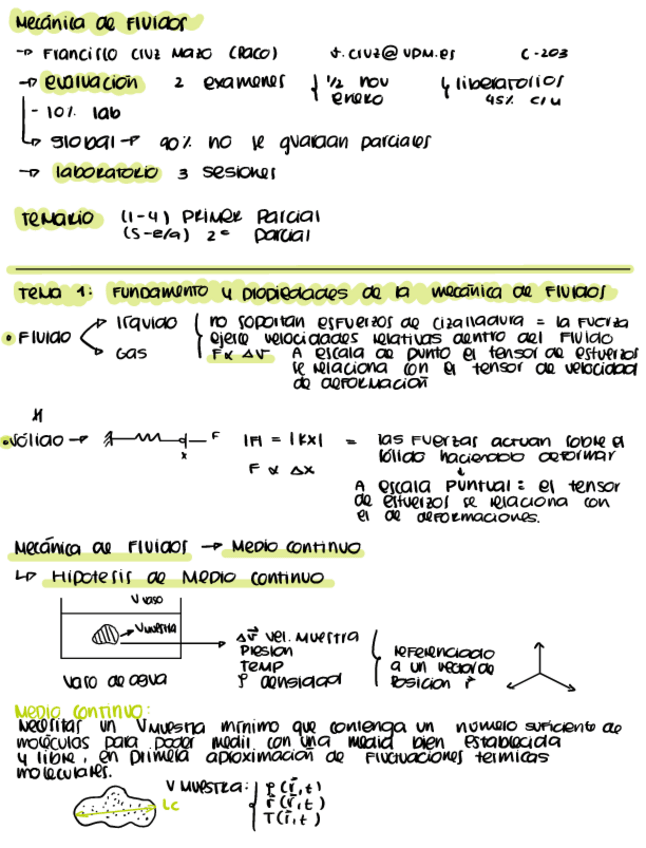 Mecánica de Fluidos
→ Francisco Cruz Mazo (Paco) f.cruz@upm.es C-203
→ evaluación 2 examenes { 1/2 nov ↳ liberatorios
enero 45% c/u
- 10% lab
↳ global → 90% no se guardan parciales
→ laboratorio 3 sesiones
Temario (1-4) Primer Parcial
(5-8/9) 2º Parcial
Tema 1: Fundamento y propiedades de la mecánica de Fluidos
• Fluido < líquido
Gas
{ no soportan esfuerzos de cizalladura = la fuerza
ejerce velocidades relativas dentro del Fluido
F α ΔV A escala de punto el tensor de esfuerzos
se relaciona con el tensor de velocidad
de deformación
• Sólido → F x |F| = |kx| = las Fuerzas actuan sobre el
sólido haciendolo deformar
F α Δx
A escala Puntual: el tensor
de esfuerzos se relaciona con
el de deformaciones.
Mecánica de Fluidos → Medio continuo
↳ Hipotesis de Medio continuo
V vaso
→ Vmuestra
vaso de agua
Δv⃗ vel. Muestra
Presion
Temp
ρ densidad
{ referenciado
a un vector de
Posicion r⃗
Medio continuo:
Necesitas un Vmuestra mínimo que contenga un número suficiente de
moléculas para poder medir con una media bien establecida
y libre, en primera aproximacion de Fluctuaciones térmicas
moleculares.
V Muestra: { ρ(r⃗,t)
r⃗(r⃗,t)
T(r⃗,t)
Lc